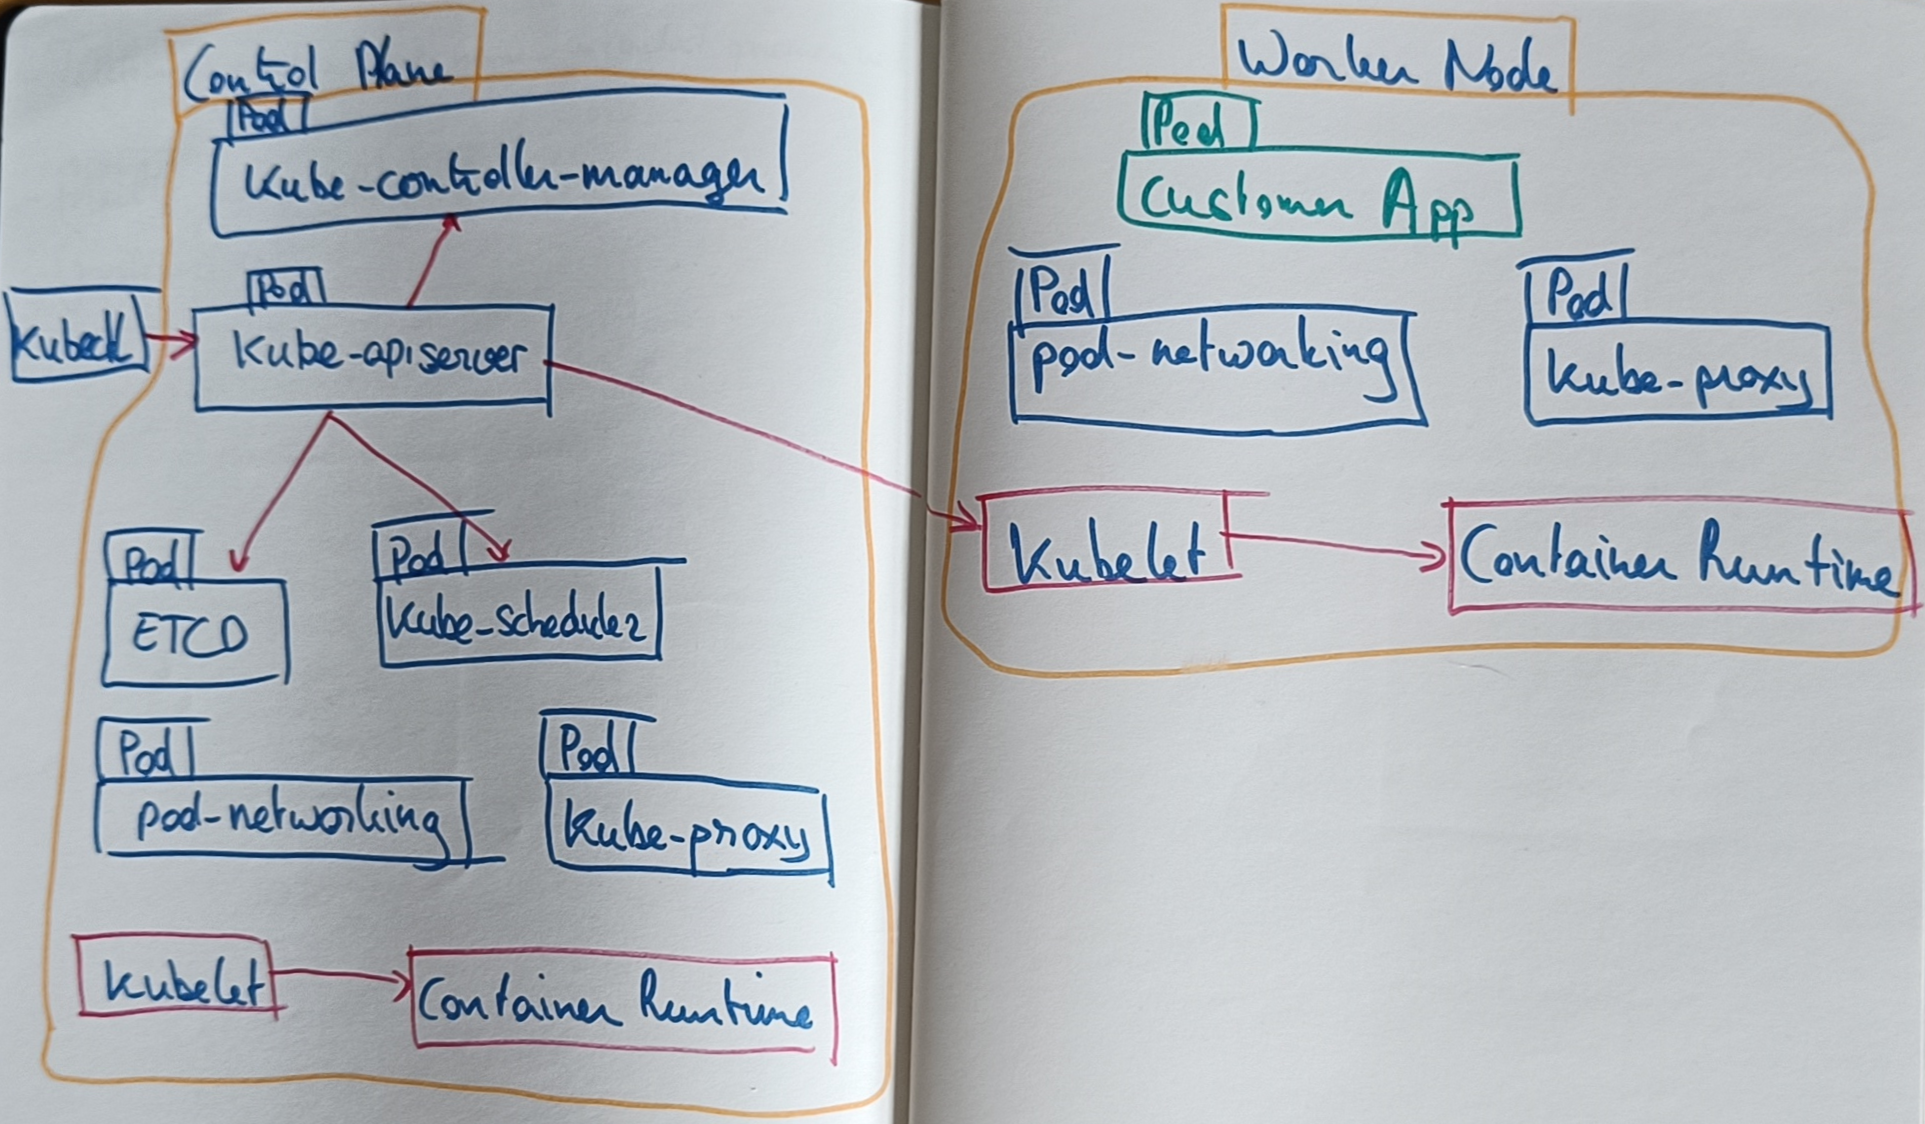 Control Plane
Pod
Kube-controller-manager
Pod
Kubectl
Kube-apiserver
Pod
ETCD
Pod
Kube-scheduler
Pod
pod-networking
Pod
Kube-proxy
Kubelet
Container Runtime
Worker Node
Pod
Customer App
Pod
pod-networking
Pod
Kube-proxy
Kubelet
Container Runtime